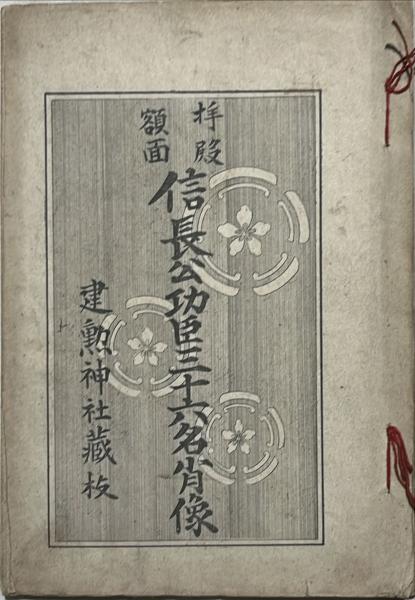 拝殿
額面
信長公功臣三十六名肖像
建勲神社蔵板